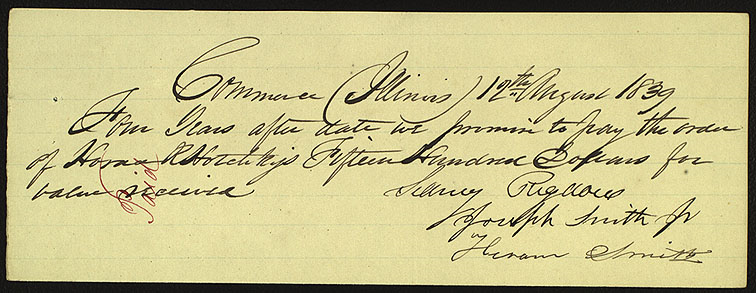 Commerce (Illinois) 12th August 1839
Four Years after date we promise to pay the order
of Horace R Hotchkiss Fifteen Hundred Dollars for
value received
Paid
Sidney Rigdon
Joseph Smith Jr
Hiram Smith